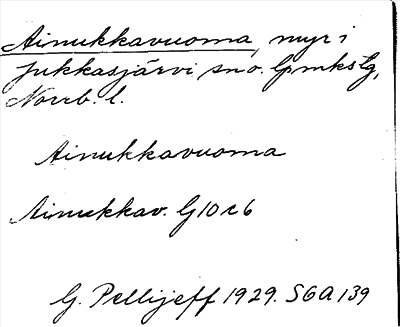 Ainukkavuoma, myr i
Jukkasjärvi sn o. lpmkslg,
Norrb. l.
Ainukkavuoma
Ainukkav. G10r6
G. Pellijeff 1929. SGA 139